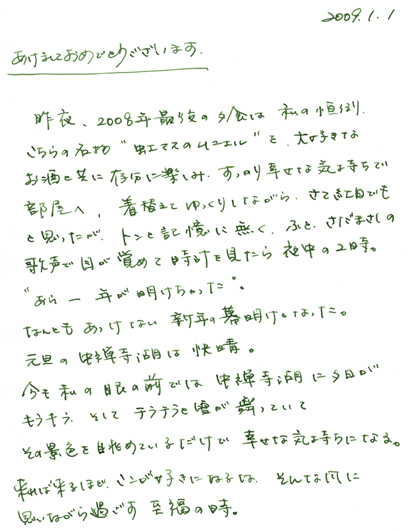 2009.1.1
あけましておめでとうございます.
昨夜、2008年最後の夕食は 私の恒例、
こちらの名物 "虹マスのムニエル" と、大好きな
お酒と共に 存分に楽しみ、すっかり幸せな気持ちで
部屋へ、着替えてゆっくりしながら、さて紅白でも
と思ったが、トンと記憶に無く、ふと、さだまさしの
歌声で目が覚めて時計を見たら 夜中の2時。
"あら 一年が明けちゃった"。
なんとも あっけない 新年の幕明けになった。
元旦の中禅寺湖は 快晴。
今も 私の眼の前では 中禅寺湖に夕日が
キラキラ、そして チラチラと雪が舞っていて
その景色を眺めているだけで 幸せな気持ちになる。
来れば来るほど、ここが好きになるな、そんな風に
思いながら過ごす 至福の時。